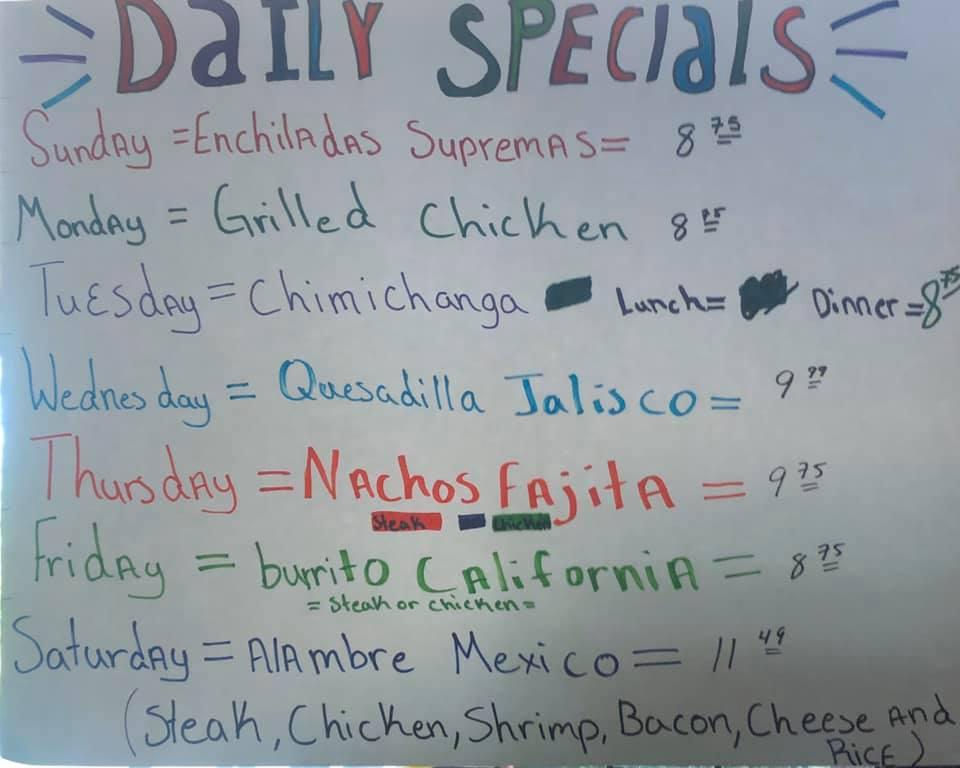 DaILY SPECIalS
SundAy = EnchilAdAS SupremAS = 8 75
MondAy = Grilled Chicken 8
TuEsdAy = Chimichanga Lunch= Dinner = 8 75
Wednesday = Quesadilla Jalisco = 9 99
ThursdAy = NAchos FAjitA = 9 75
Steak Chicken
FridAy = burrito CAliforniA = 8 75
= Steak or chicken =
SaturdAy = AlAmbre Mexico = 11 49
(Steak, Chicken, Shrimp, Bacon, Cheese And
RicE)